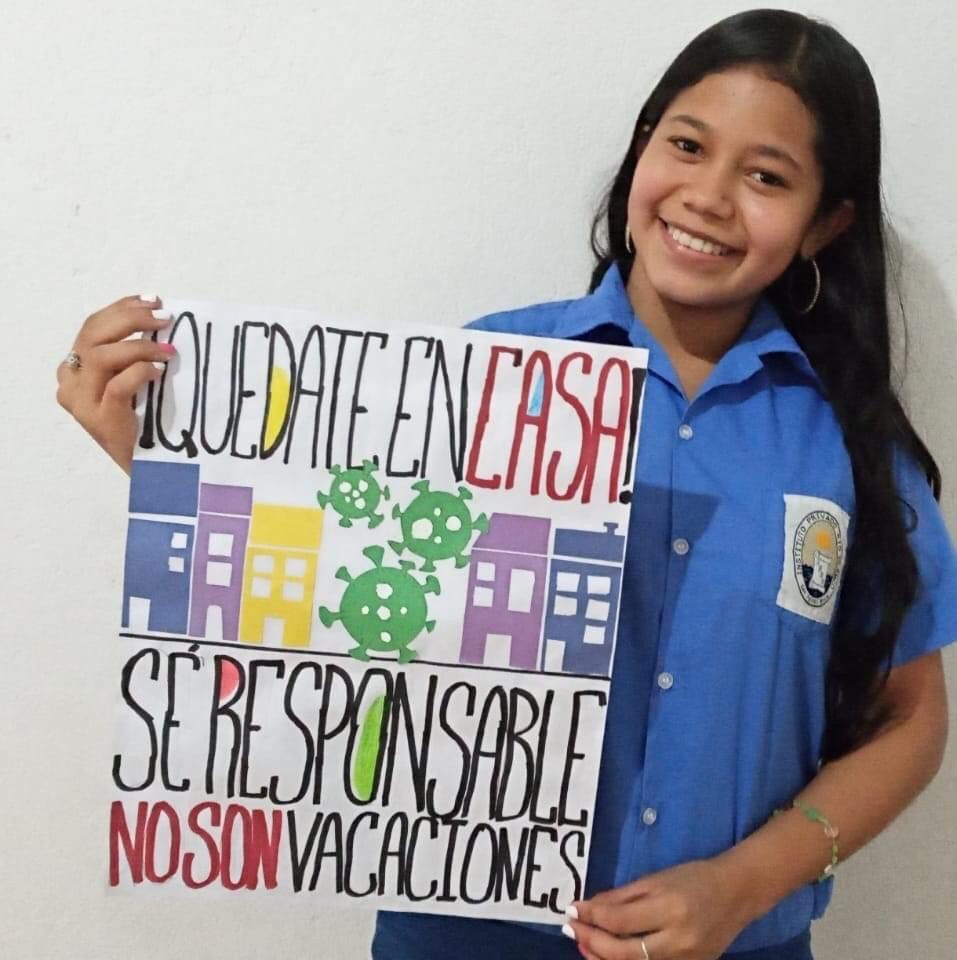 ¡QUEDATE EN CASA!
SÉ RESPONSABLE
NO SON VACACIONES
INSTITUTO PRIVADO